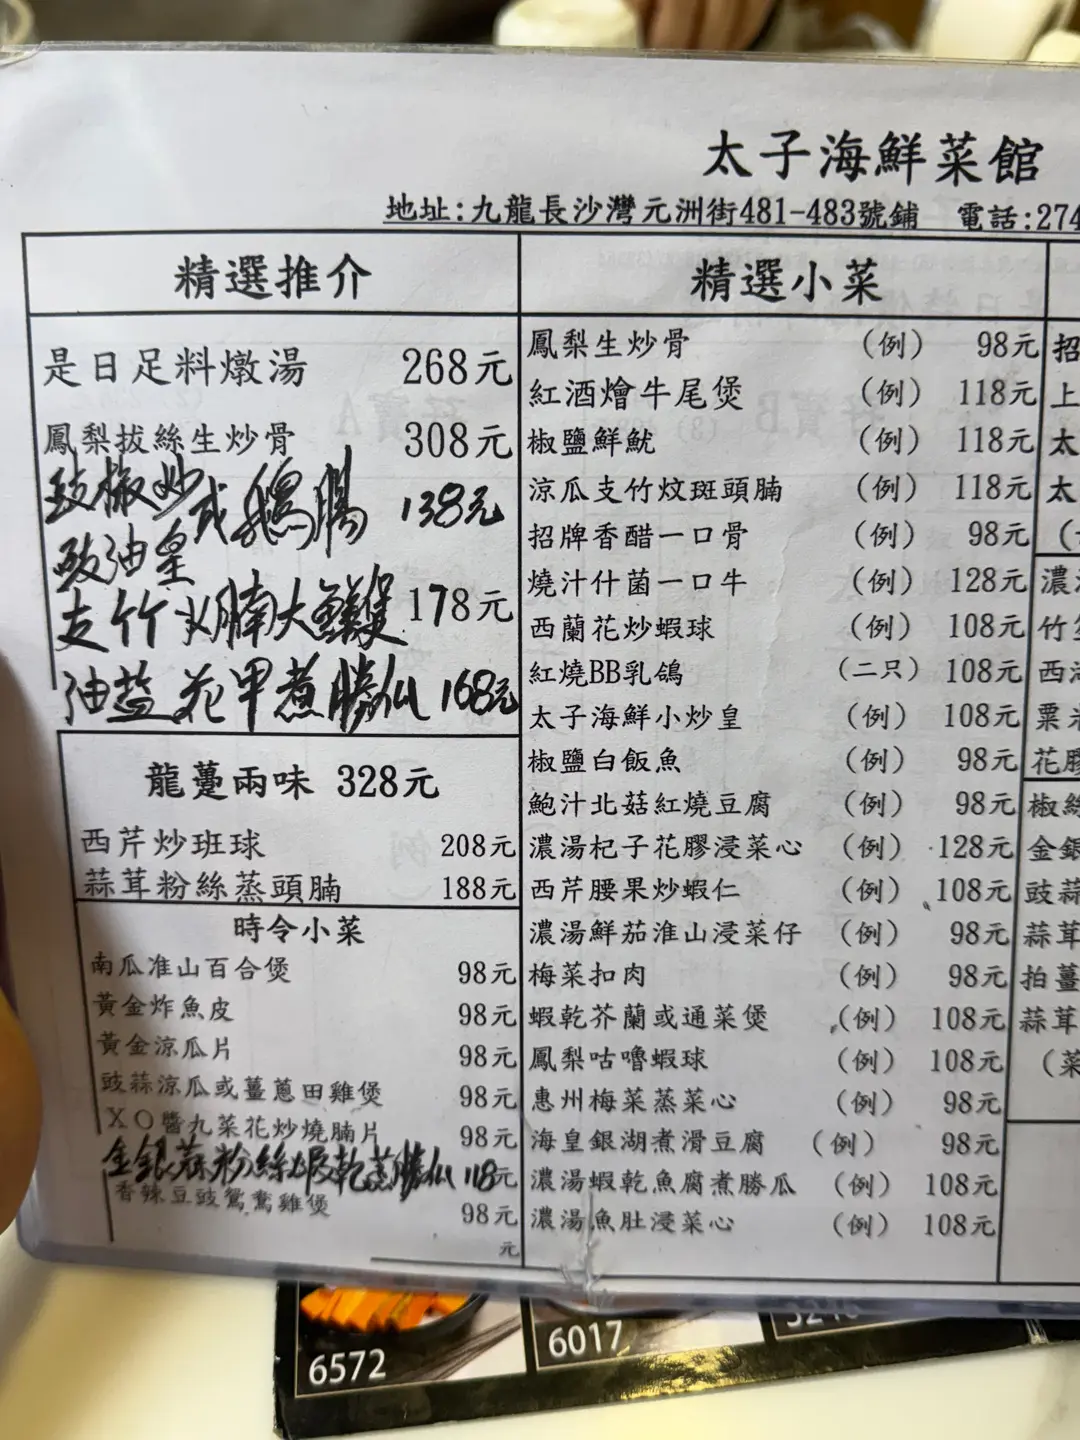 太子海鮮菜館
地址:九龍長沙灣元洲街481-483號鋪 電話:274
精選推介
是日足料燉湯 268元
鳳梨拔絲生炒骨 308元
豉椒炒或鵝腸 138元
豉油皇
支竹火腩大鱔煲 178元
油鹽花甲煮勝瓜 168元
龍躉兩味 328元
西芹炒班球 208元
蒜茸粉絲蒸頭腩 188元
時令小菜
南瓜准山百合煲 98元
黃金炸魚皮 98元
黃金涼瓜片 98元
豉蒜涼瓜或薑蔥田雞煲 98元
XO醬九菜花炒燒腩片 98元
金銀蒜粉絲蝦乾蒸勝瓜 118元
香辣豆豉鴛鴦雞煲 98元
元
精選小菜
鳳梨生炒骨 (例) 98元
紅酒燴牛尾煲 (例) 118元
椒鹽鮮魷 (例) 118元
涼瓜支竹炆斑頭腩 (例) 118元
招牌香醋一口骨 (例) 98元
燒汁什菌一口牛 (例) 128元
西蘭花炒蝦球 (例) 108元
紅燒BB乳鴿 (二只) 108元
太子海鮮小炒皇 (例) 108元
椒鹽白飯魚 (例) 98元
鮑汁北菇紅燒豆腐 (例) 98元
濃湯杞子花膠浸菜心 (例) 128元
西芹腰果炒蝦仁 (例) 108元
濃湯鮮茄淮山浸菜仔 (例) 98元
梅菜扣肉 (例) 98元
蝦乾芥蘭或通菜煲 (例) 108元
鳳梨咕嚕蝦球 (例) 108元
惠州梅菜蒸菜心 (例) 98元
海皇銀湖煮滑豆腐 (例) 98元
濃湯蝦乾魚腐煮勝瓜 (例) 108元
濃湯魚肚浸菜心 (例) 108元
招
上
太
太
(
濃
竹
西
粟
花膠
椒絲
金銀
豉蒜
蒜茸
拍薑
蒜茸
(菜
6572
6017